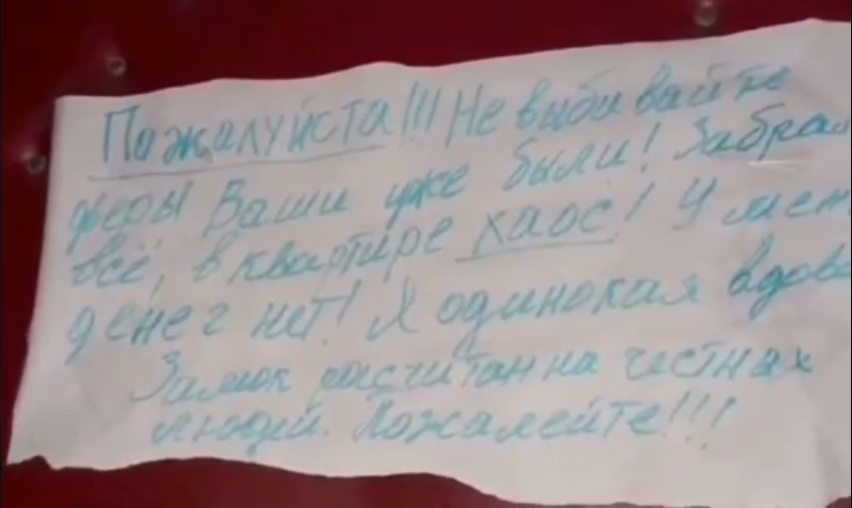 Пожалуйста!!! Не выбивайте
двери! Ваши уже были! Забрал
всё, в квартире хаос! У мен
денег нет! Я одинокая вдова
Замок расчитан на честных
людей. Пожалейте!!!